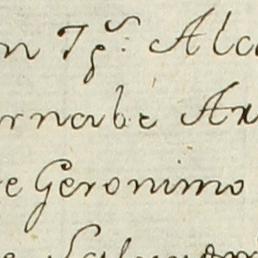 n Igˢ. Alc
rnabé Ar
e Geronimo